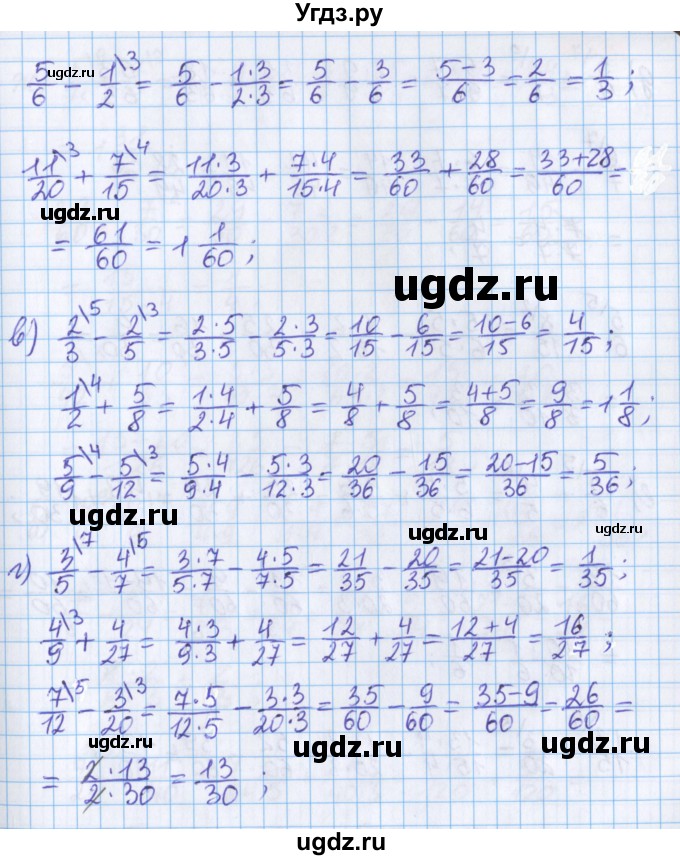 Угдз.ру
5/6 - 1/2\3 = 5/6 - 1·3/2·3 = 5/6 - 3/6 = 5-3/6 = 2/6 = 1/3;
ugdz.ru
11/20\3 + 7/15\4 = 11·3/20·3 + 7·4/15·4 = 33/60 + 28/60 = 33+28/60 =
ugdz.ru
ugdz.ru
= 61/60 = 1 1/60;
ugdz.ru
в) 2/3\5 - 2/5\3 = 2·5/3·5 - 2·3/5·3 = 10/15 - 6/15 = 10-6/15 = 4/15;
1/2\4 + 5/8 = 1·4/2·4 + 5/8 = 4/8 + 5/8 = 4+5/8 = 9/8 = 1 1/8;
5/9\4 - 5/12\3 = 5·4/9·4 - 5·3/12·3 = 20/36 - 15/36 = 20-15/36 = 5/36;
ugdz.ru
ugdz.ru
г) 3/5\7 - 4/7\5 = 3·7/5·7 - 4·5/7·5 = 21/35 - 20/35 = 21-20/35 = 1/35;
ugdz.ru
4/9\3 + 4/27 = 4·3/9·3 + 4/27 = 12/27 + 4/27 = 12+4/27 = 16/27;
7/12\5 - 3/20\3 = 7·5/12·5 - 3·3/20·3 = 35/60 - 9/60 = 35-9/60 = 26/60 =
ugdz.ru
ugdz.ru
= 2·13/2·30 = 13/30;
ugdz.ru